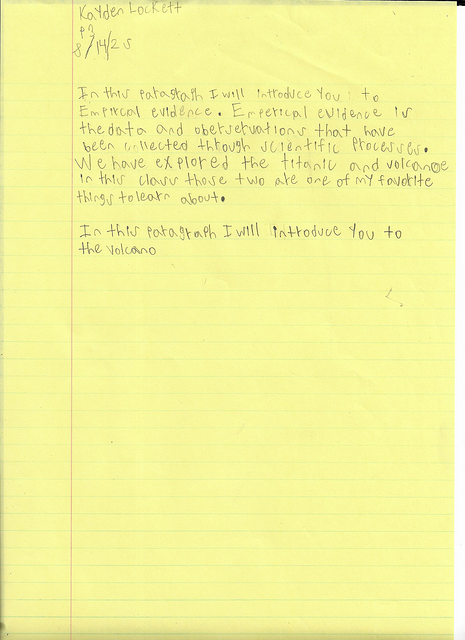 Kayden Lockett
P3
8/14/25
In this paragraph I will introduce You to
Empircal evidence. Emperical evidence is
the data and obersetvations that have
been collected through scientific Processes.
We have explored the titanic and volcanoe
in this class those two are one of my favorite
things to learn about.
In this paragraph I will introduce You to
the volcano